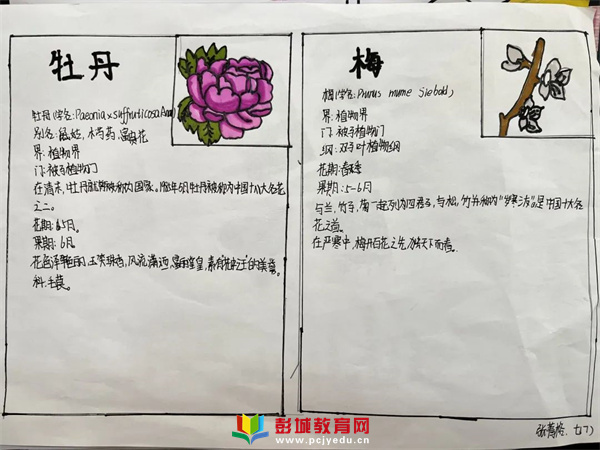 牡丹
牡丹(学名:Paeonia x suffruticosa Andr)
别名:鼠姑、木芍药、富贵花
界:植物界
门:被子植物门
在清末,牡丹就曾被称为国花。1985年5月牡丹被称为中国十八大名花
之二。
花期:5月。
果期:6月
花色泽艳丽,玉笑珠香,风流潇洒,富丽堂皇,素有花中之王的美誉。
科:毛茛。
梅
梅(学名:Prunus mume Siebold)
界:植物界
门:被子植物门
纲:双子叶植物纲
花期:春季
果期:5-6月
与兰,竹子,菊一起列为四君子,与松,竹并称为"岁寒三友"是中国十大名
花之首。
在严寒中,梅开百花之先,独天下而春.
彭城教育网
www.pcjyedu.cn